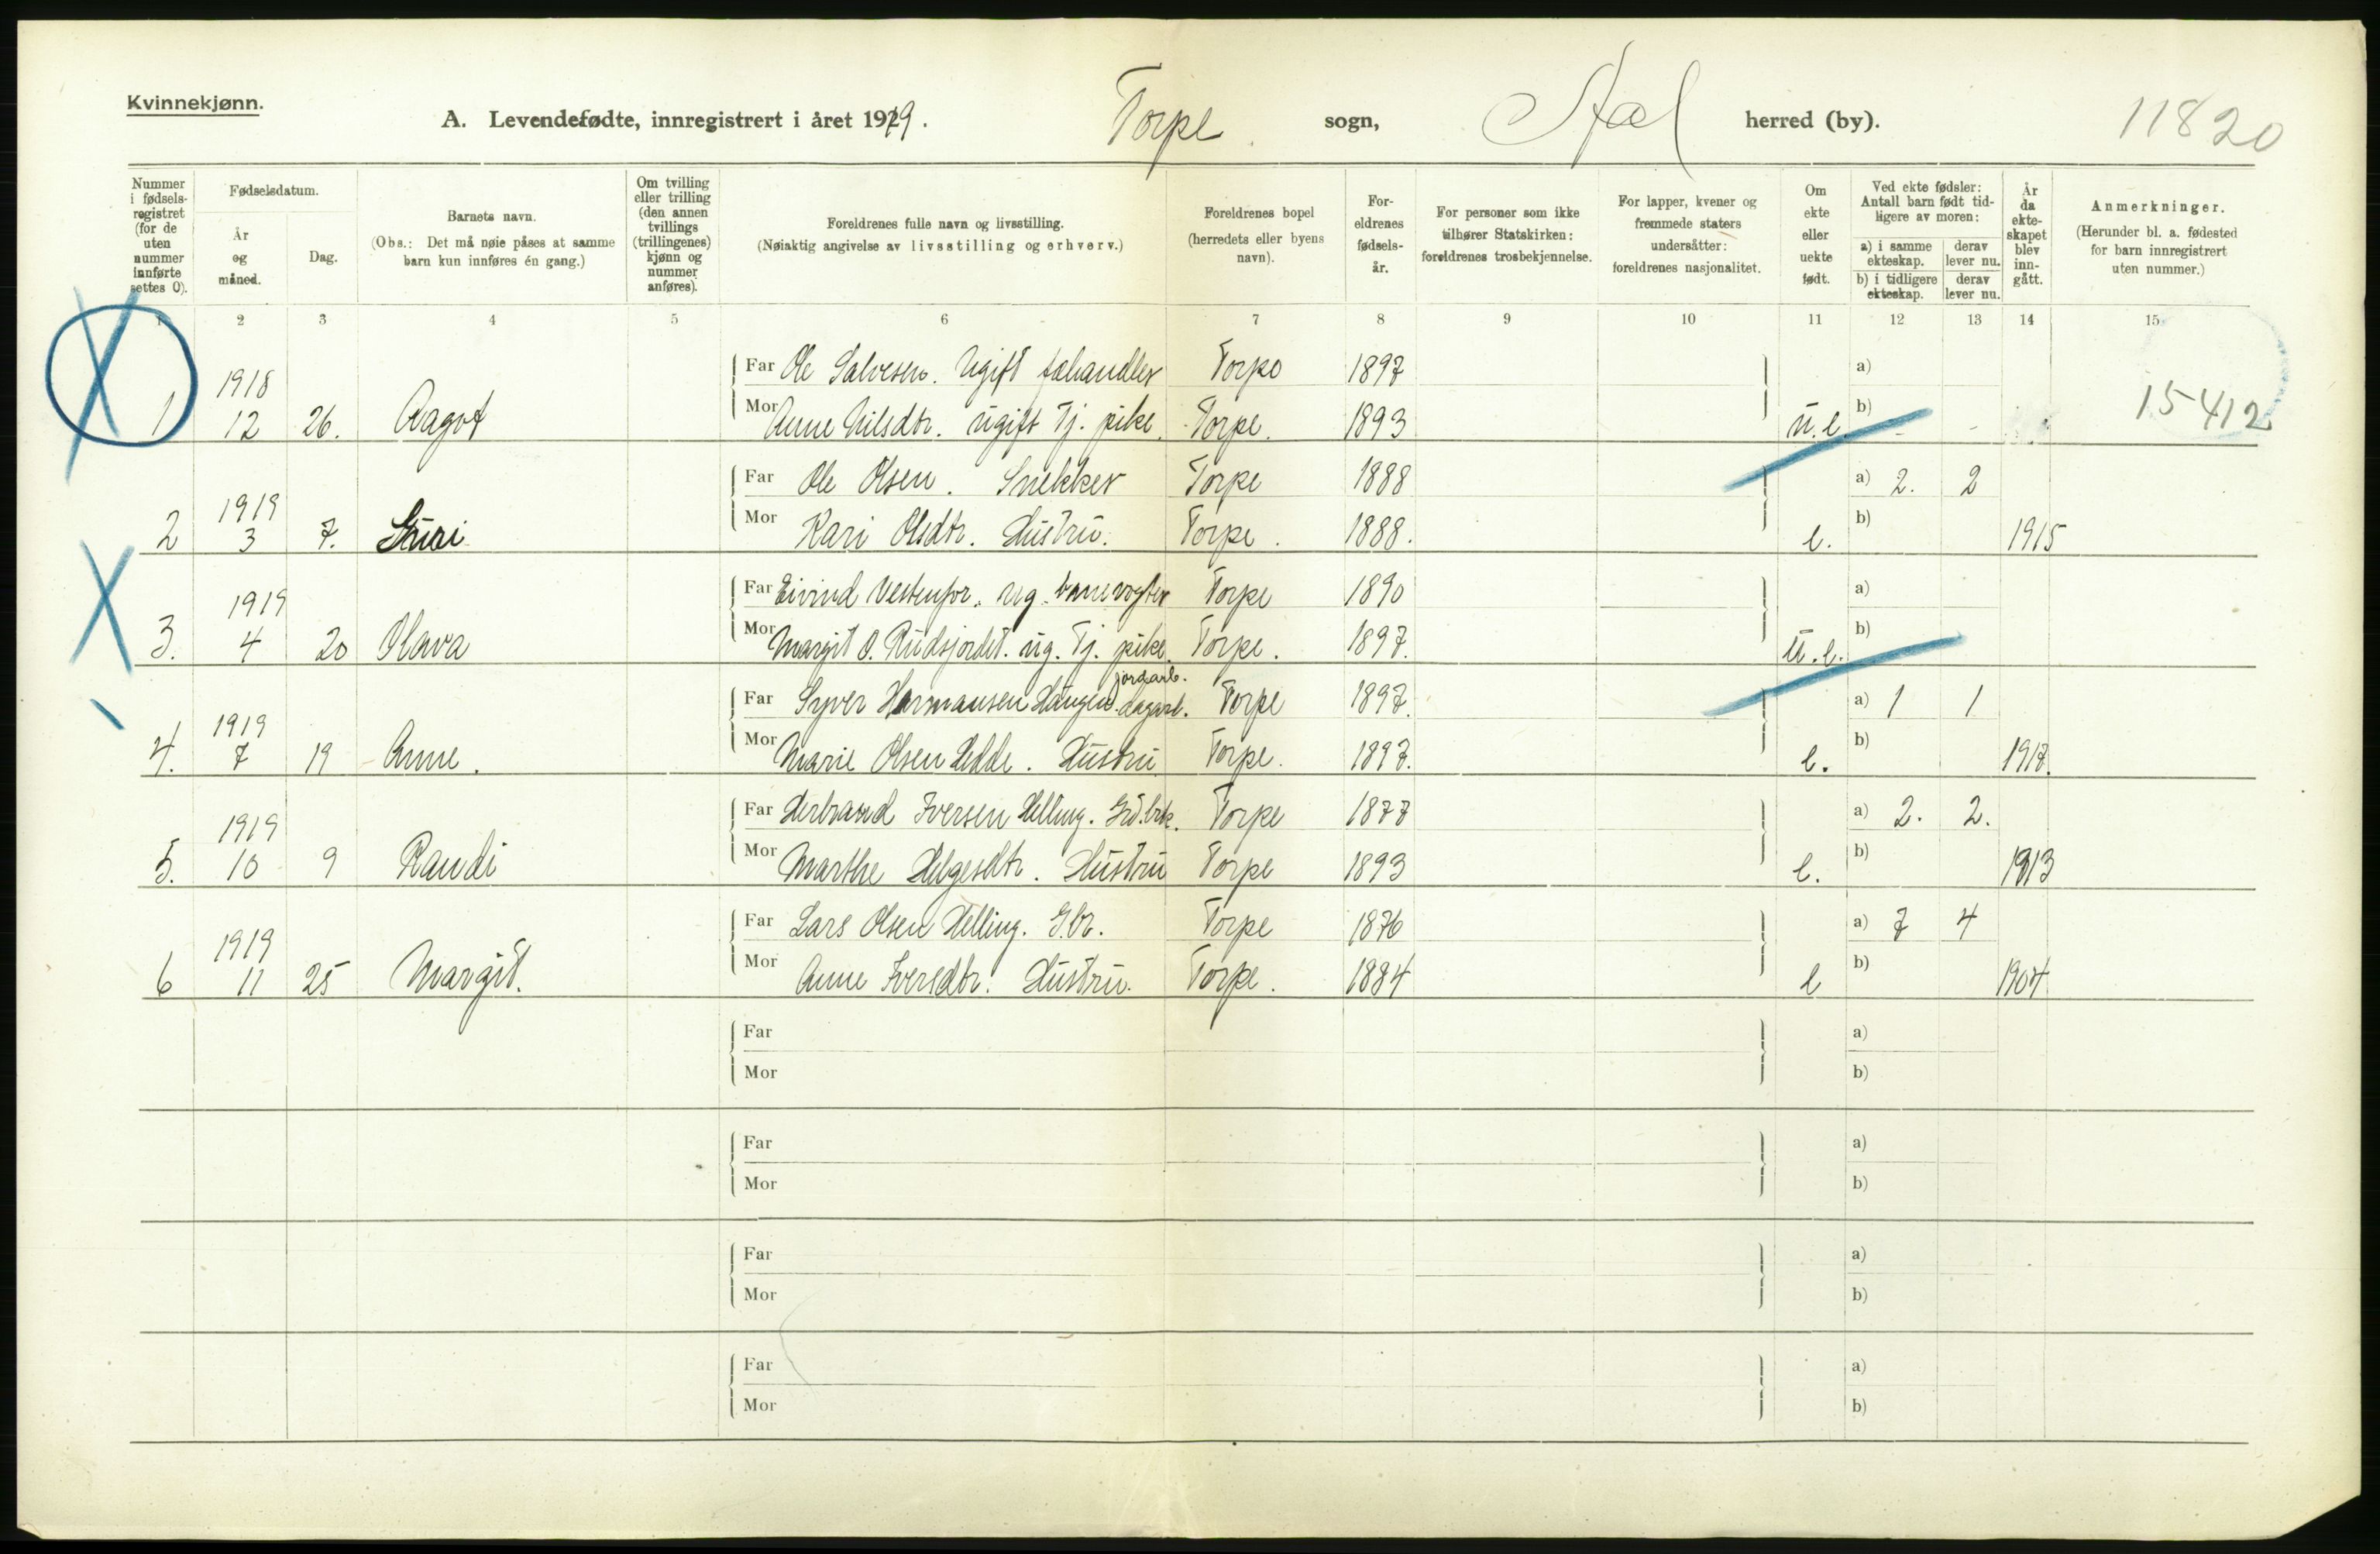 Kvinnekjønn.
A. Levendefødte, innregistrert i året 1919. Torpe sogn, Aal herred (by). 11820
Nummer i fødselsregistret (for de uten nummer innførte settes 0).
Fødselsdatum.
År og måned.
Dag.
Barnets navn.
(Obs.: Det må nøie påses at samme barn kun innføres én gang.)
Om tvilling eller trilling (den annen tvillings (trillingenes) kjønn og nummer anføres).
Foreldrenes fulle navn og livsstilling.
(Nøiaktig angivelse av livsstilling og erhverv.)
Foreldrenes bopel (herredets eller byens navn).
Foreldrenes fødselsår.
For personer som ikke tilhører Statskirken: foreldrenes trosbekjennelse.
For lapper, kvener og fremmede staters undersåtter: foreldrenes nasjonalitet.
Om ekte eller uekte født.
Ved ekte fødsler: Antall barn født tidligere av moren:
a) i samme ekteskap. derav lever nu.
b) i tidligere ekteskap. derav lever nu.
År da ekteskapet blev inngått.
Anmerkninger.
(Herunder bl. a. fødested for barn innregistrert uten nummer.)
1 2 3 4 5 6 7 8 9 10 11 12 13 14 15
Far Ole Salvesen. Ugift fæhandler Torpo 1897 a)
1 1918 12 26. Aagot Mor Anne Nilsdtr. ugift Tj. pike. Torpe. 1893 u.e. b) 15412
Far Ole Olsen. Snekker Torpe 1888 a) 2. 2
2 1919 3 7. Guri Mor Kari Olsdtr. Hustru. Torpe. 1888. e. b) 1915
Far Eivind Vestenfor. ug. banevogter Torpe 1890 a)
3. 1919 4 20 Olava Mor Margit O. Rudsjordet. ug. Tj. pike. Torpe. 1897. u.e. b)
jordarb.
Far Syver Hermansen Haugen. dagarb. Torpe 1897. a) 1 1
4. 1919 7 19 Anne. Mor Marie Olsen Hedde. Hustru Torpe. 1897. e. b) 1917.
Far Herbrand Iversen Helling. Grd.brk. Torpe 1877 a) 2. 2.
5. 1919 10 9 Randi Mor Marthe Helgesdtr. Hustru Torpe 1893 e. b) 1913
Far Lars Olsen Helling. G.br. Torpe 1876 a) 7 4
6 1919 11 25 Margit. Mor Anne Iversdtr. Hustru. Torpe. 1884 e b) 1904
Far a)
Mor b)
Far a)
Mor b)
Far a)
Mor b)
Far a)
Mor b)